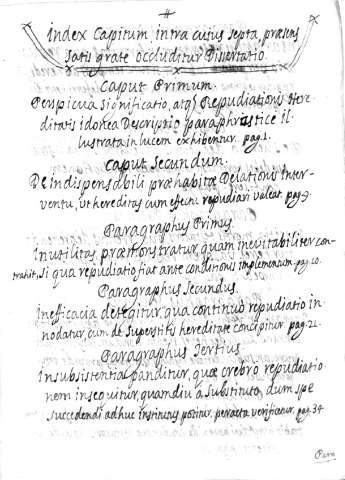 Index Capitum, intra cuius septa, præsens
satis grate occluditur Dissertatio
Caput Primum.
Perspicua significatio, atq₃ Repudiationis Here-
ditatis idonea Descriptio paraphrastice il-
lustrata in lucem exhibentur. pag. 1.
Caput Secundum.
De indispensabili præhabitæ Delationis Inter-
ventu, ut hereditas cum effectu repudiari valeat pag. 9.
Paragraphus Primus
Inutilitas præmonstratur, quam inevitabiliter con-
trahit, si qua repudiatio fiat ante conditionis implementum. pag. 10.
Paragraphus Secundus
Inefficacia detegitur, qua continuò repudiatio in-
nodatur, cum de Superstitis hereditate concipitur pag. 21.
Paragraphus Tertius
Insubsistentia panditur, quæ crebro repudiatio-
nem insequitur, quamdiu a Substituto, dum spe
succedendi adhuc institutus potitur, peracta verificatur. pag. 34
Para